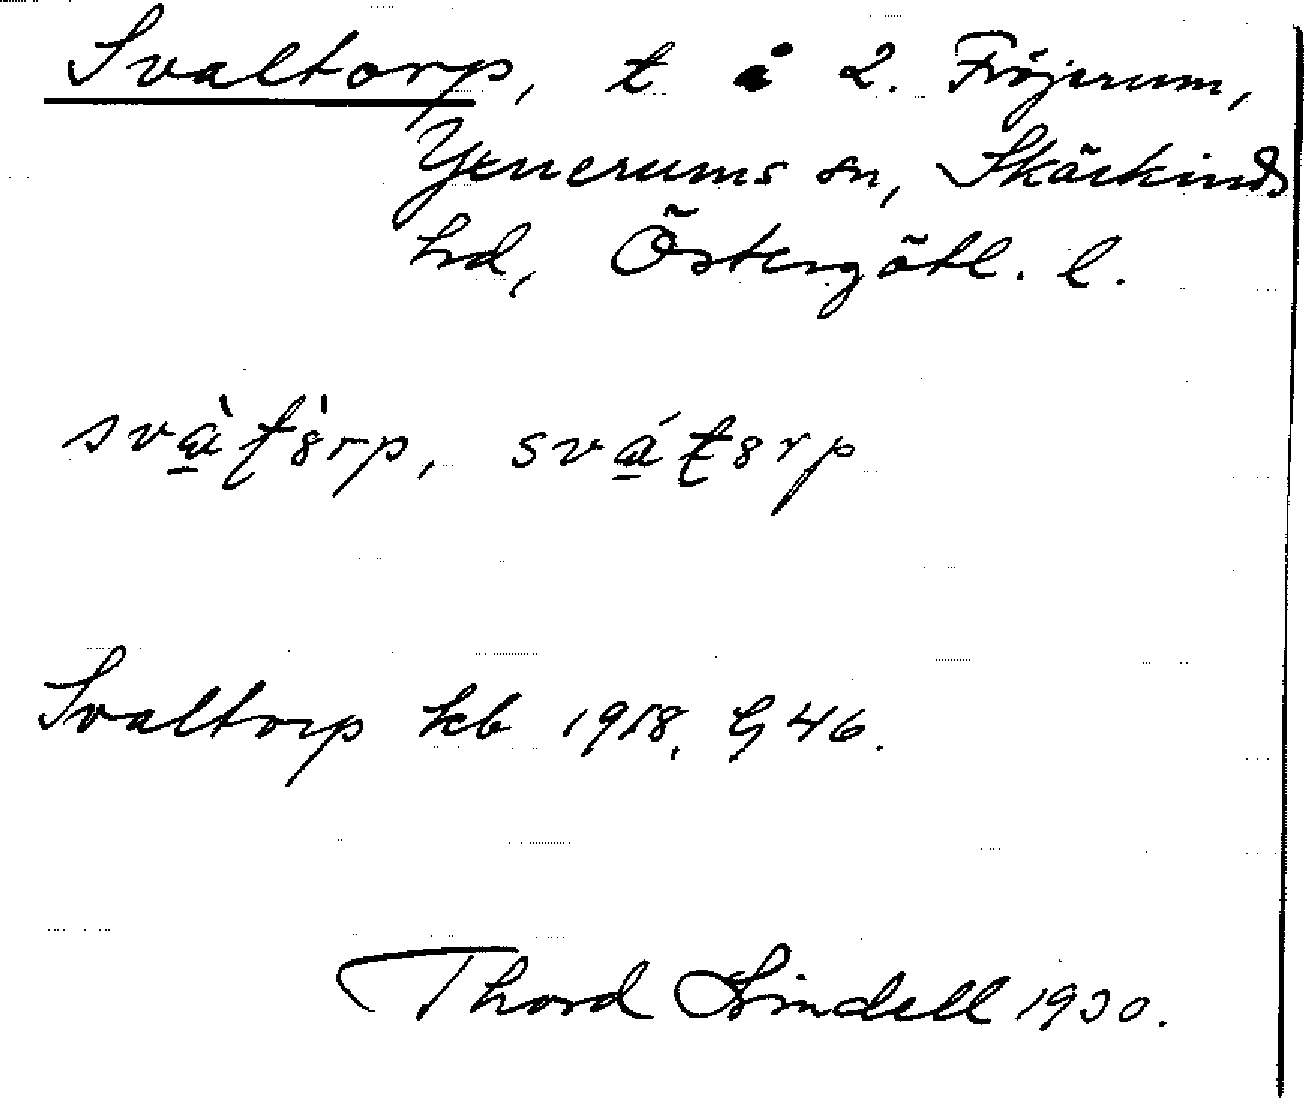 Svaltorp, t å 2. Fröjerum,
Gtenerums sn, Skärkinds
hd, Östergötl. l.
svà̲ʈ8̀rp, svá̲ʈ8rp
Svaltorp kb 1918, G 46.
Thord Lindell 1930.